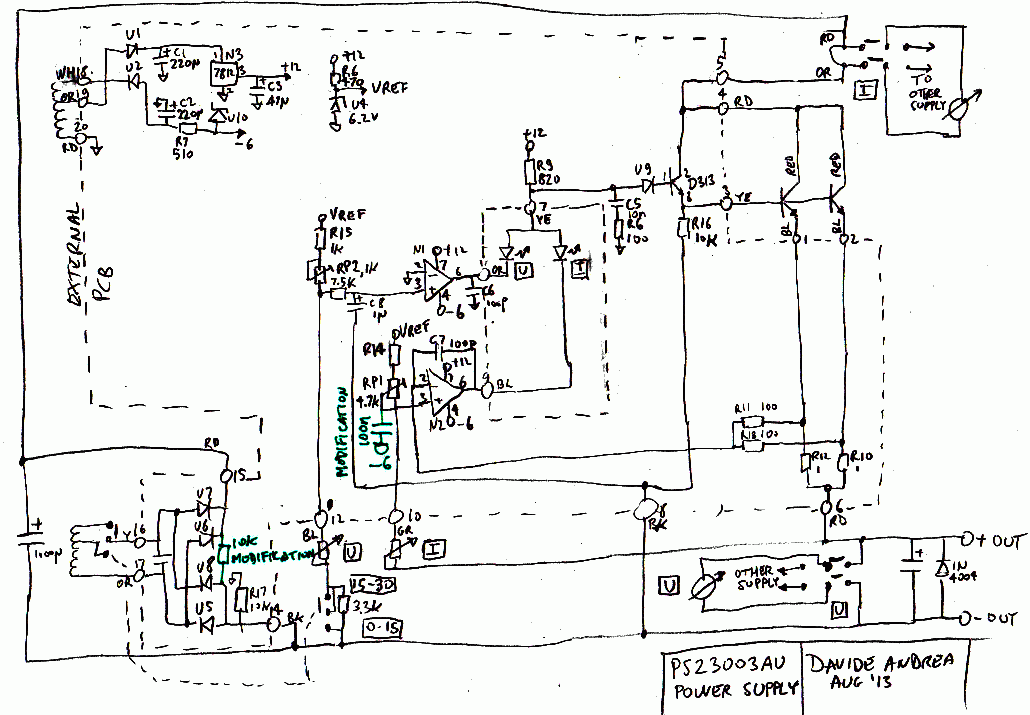 U1
C1
220µ
N3
7812
1
3
2
+12
C3
47N
WH18
U2
OR19
C2
220µ
U10
20
RD
R7
510
-6
+12
R6
470
VREF
U4
6.2V
EXTERNAL
PCB
RD
OR
5
4
RD
I
TO
OTHER
SUPPLY
+12
R9
820
U9
1
2
D313
C5
10n
R6
100
R16
10K
3
YE
RED
RED
BL
BL
1
2
7
YE
OR
U
I
VREF
R15
1K
RP2, 1K
7.5K
C8
1N
N1
+12
2
7
6
3
4
-6
C6
100p
VREF
R14
RP1
4.7K
C7
100p
+12
2
7
6
3
4
N2
-6
9
BL
MODIFICATION
100n
-6
R11 100
R18 100
R12
1
R10
1
6
RD
8
BK
RD
15
U7
U6
U8
U5
10K
MODIFICATION
R17
10K
14
BK
1100µ
Y
16
17
OR
12
BL
U
10
GR
I
15-30
3.3K
0-15
U
OTHER
SUPPLY
U
1N
4004
+ OUT
- OUT
PS23003AU
POWER SUPPLY
DAVIDE ANDREA
AUG '13